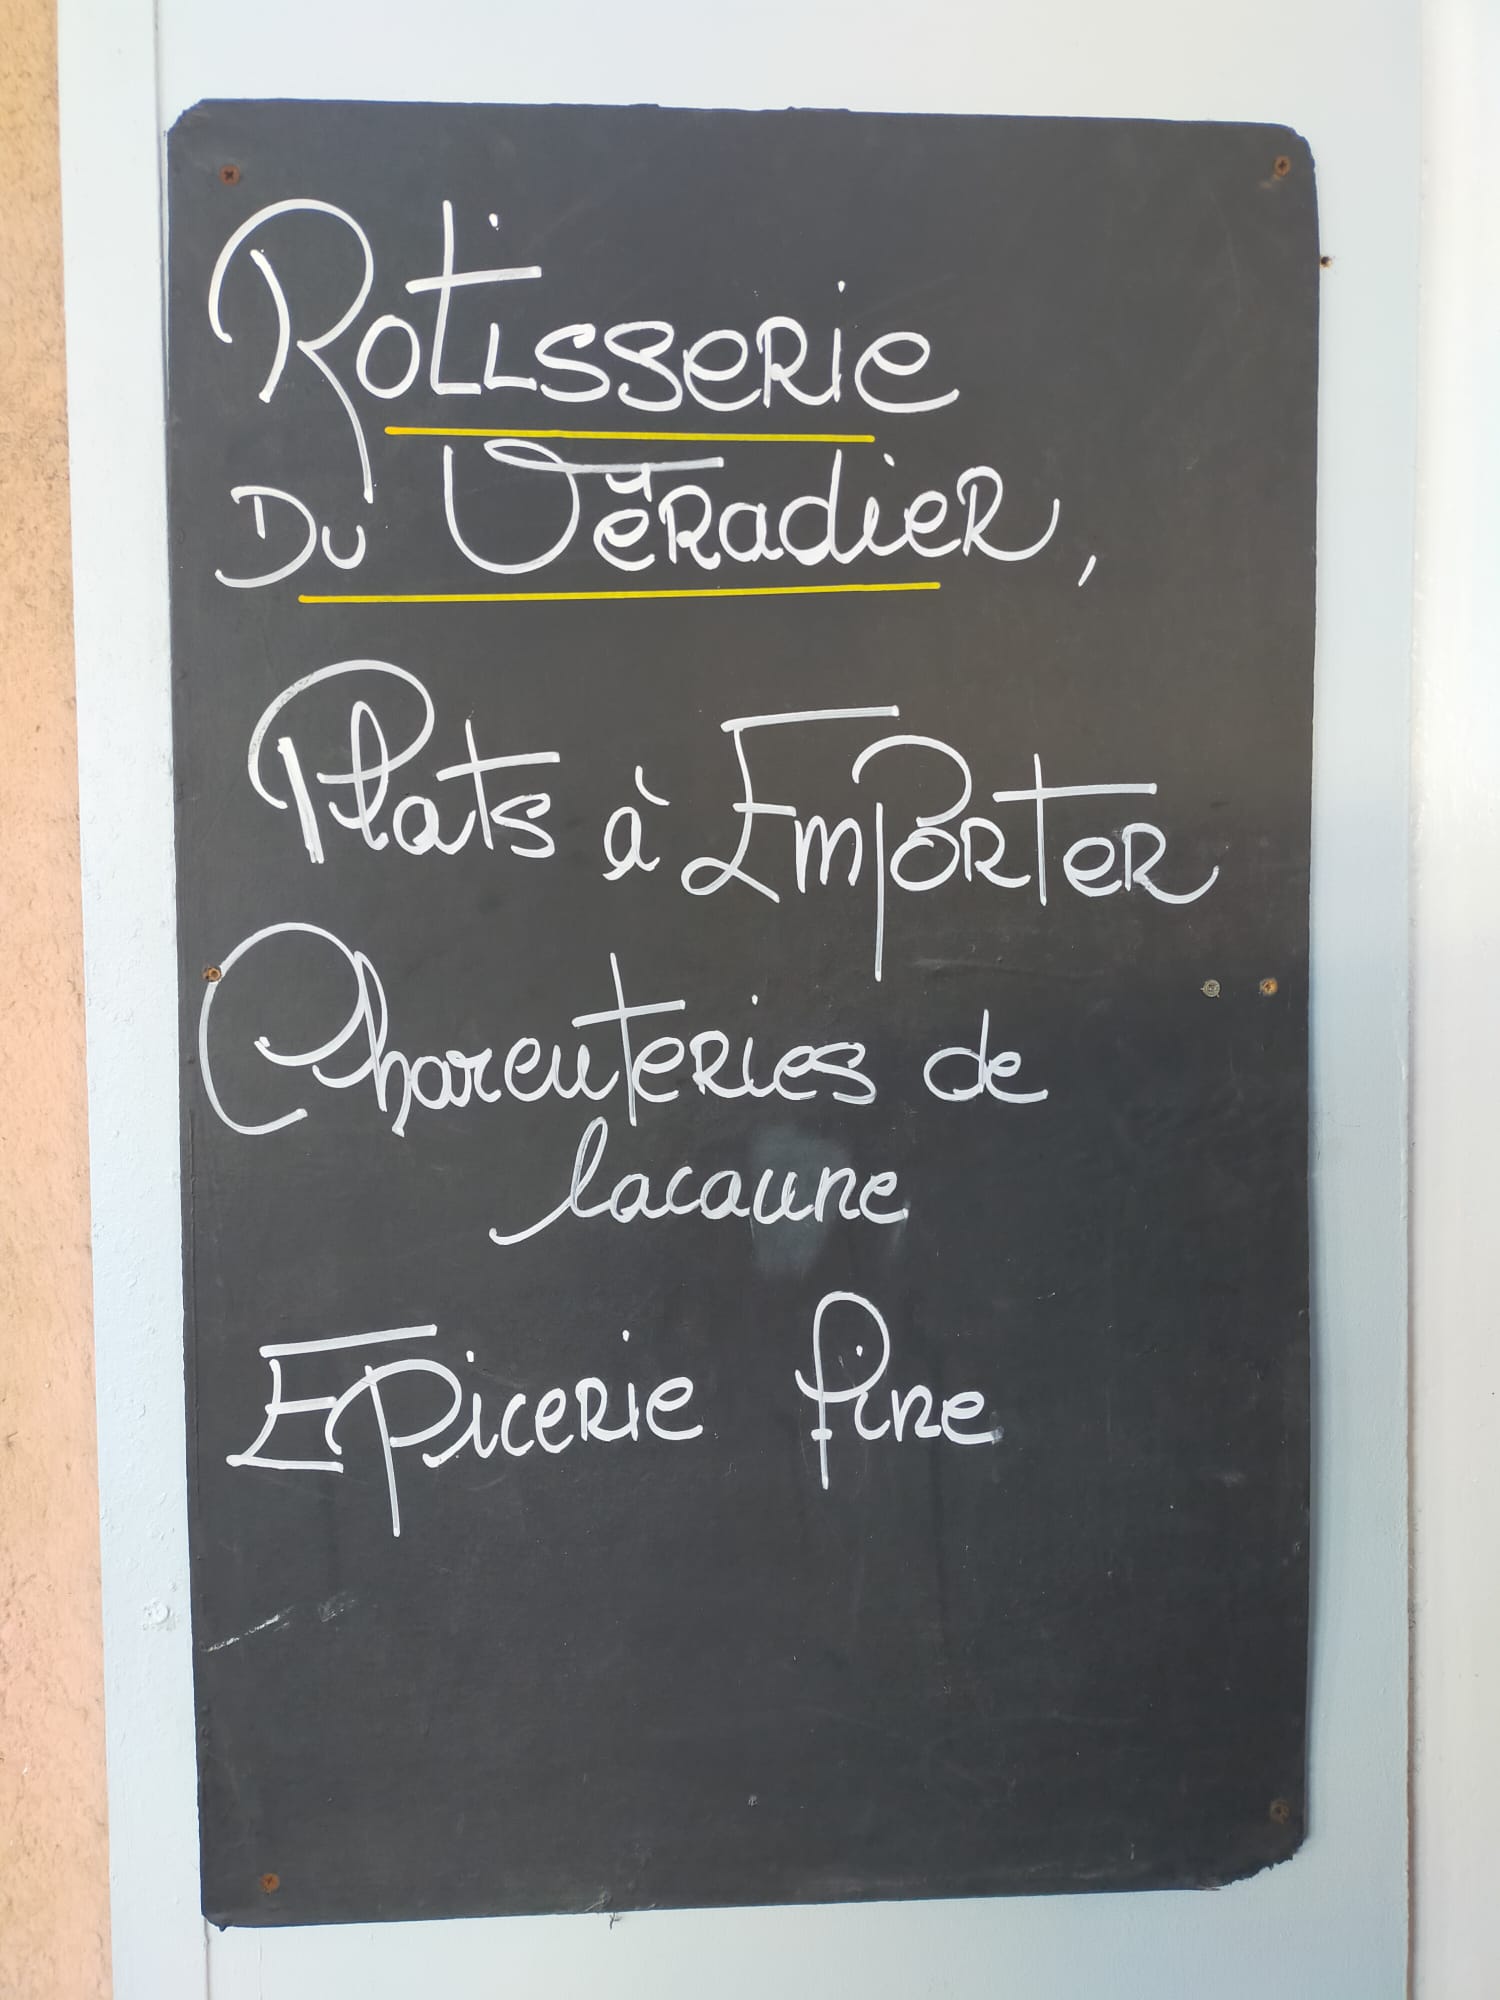 Rotisserie
Du Véradier,
Plats à Emporter
Charcuteries de
lacaune
Epicerie fine